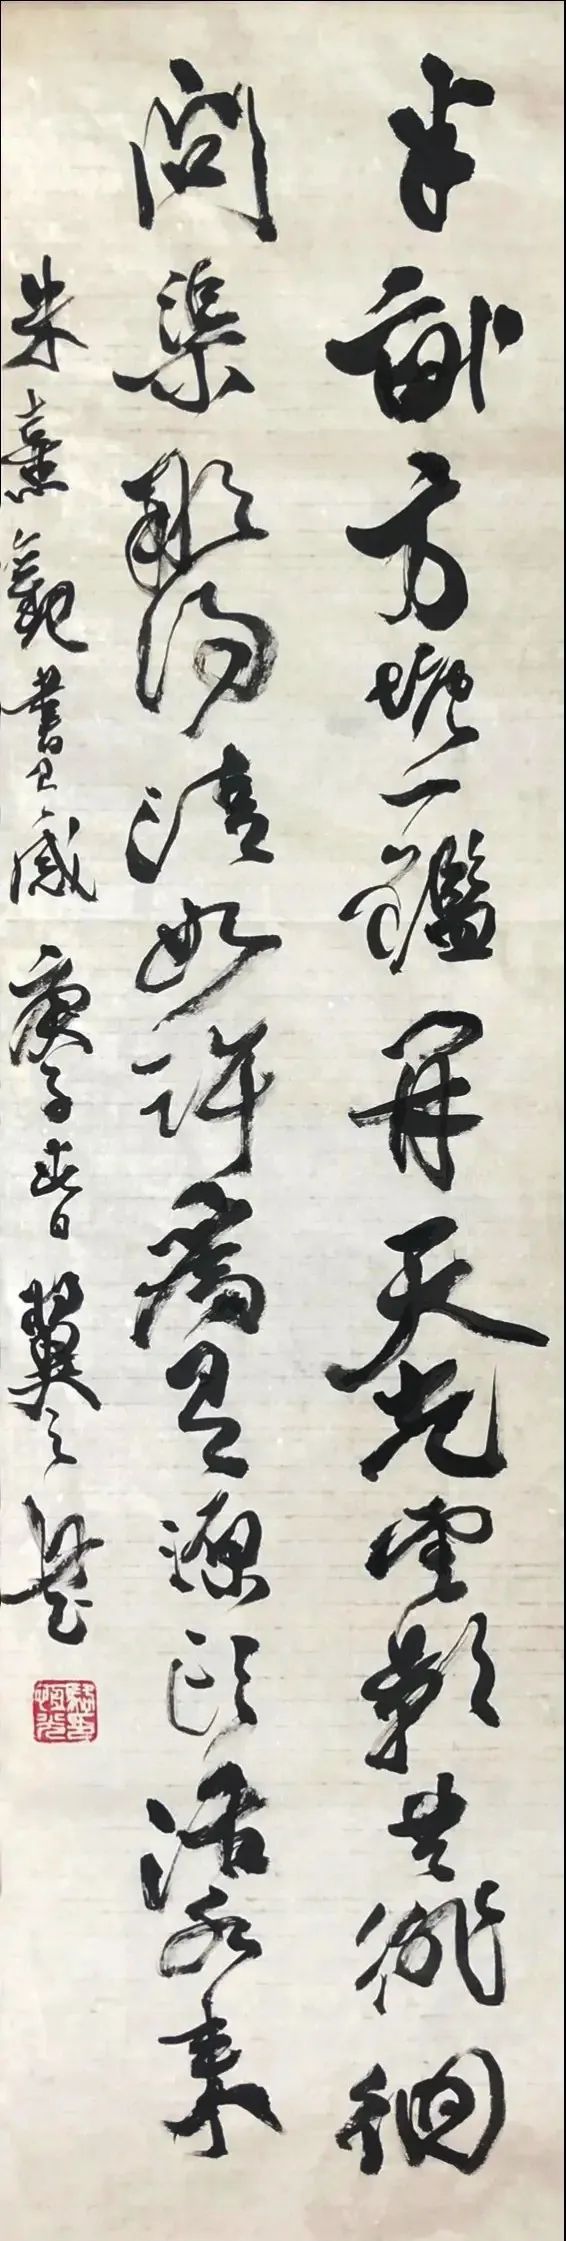 半畝方塘一鑑開天光雲影共徘徊
問渠那得清如許為有源頭活水來
朱熹觀書有感 庚子春日 翼之書